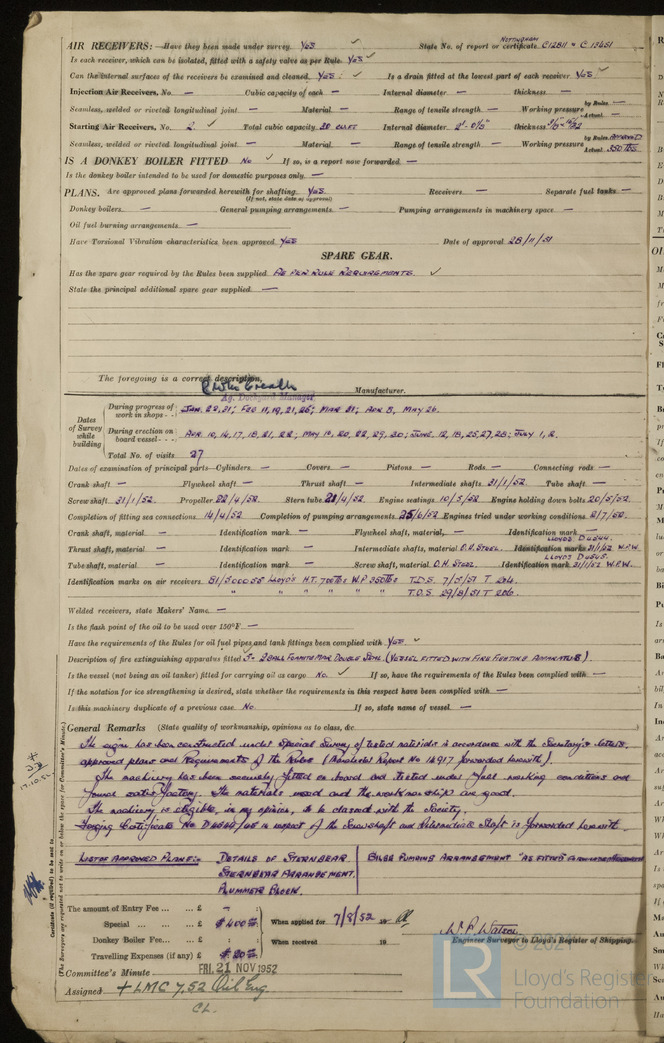 AIR RECEIVERS:— Have they been made under survey. Yes State No. of report or certificate NOTTINGHAM C12811 & C 13651
Is each receiver, which can be isolated, fitted with a safety valve as per Rule. Yes
Can the internal surfaces of the receivers be examined and cleaned. Yes. Is a drain fitted at the lowest part of each receiver Yes
Injection Air Receivers, No. — Cubic capacity of each — Internal diameter — thickness —
Seamless, welded or riveted longitudinal joint — Material — Range of tensile strength — Working pressure by Rules — Actual —
Starting Air Receivers, No. 2. Total cubic capacity 20 cu.ft Internal diameter thickness
Seamless, welded or riveted longitudinal joint — Material — Range of tensile strength — Working pressure by Rules APPROVED Actual 350 lbs
IS A DONKEY BOILER FITTED No If so, is a report now forwarded —
Is the donkey boiler intended to be used for domestic purposes only —
PLANS. Are approved plans forwarded herewith for shafting. Yes. Receivers — Separate fuel tanks —
(If not, state date of approval)
Donkey boilers — General pumping arrangements — Pumping arrangements in machinery space —
Oil fuel burning arrangements —
Have Torsional Vibration characteristics been approved Yes Date of approval 28/11/51
SPARE GEAR.
Has the spare gear required by the Rules been supplied. AS PER RULE REQUIREMENTS.
State the principal additional spare gear supplied. —
The foregoing is a correct description,
Ag. Dockyard Manager Manufacturer.
Dates of Survey while building
During progress of work in shops - - JAN. 22, 31; FEB 11, 19, 21, 26; MAR 21; APR 8, MAY 26.
During erection on board vessel - - - APR 10, 14, 17, 18, 21, 22; MAY 20, 22, 29, 30; JUNE. 12, 18, 25, 27, 28; JULY 1, 2.
Total No. of visits 27
Dates of examination of principal parts—Cylinders — Covers — Pistons — Rods — Connecting rods —
Crank shaft — Flywheel shaft — Thrust shaft — Intermediate shafts 31/1/52 Tube shaft —
Screw shaft 31/1/52. Propeller 22/4/52. Stern tube 21/4/52. Engine seatings 10/5/52 Engine holding down bolts 20/5/52.
Completion of fitting sea connections 14/4/52 Completion of pumping arrangements 25/6/52 Engines tried under working conditions 2/7/52.
Crank shaft, material — Identification mark — Flywheel shaft, material, — Identification mark —
Thrust shaft, material — Identification mark — Intermediate shafts, material O.H. STEEL. Identification marks LLOYDS 31/1/52 W.P.W.
Tube shaft, material — Identification mark — Screw shaft, material O.H. STEEL. Identification mark LLOYDS 31/1/52 W.P.W.
Identification marks on air receivers. Lloyd's H.T. 700 lbs W.P 350 lbs T.D.S. 7/5/51 T 204.
" " " " " " T.D.S. 29/8/51 T 206.
Welded receivers, state Makers' Name. —
Is the flash point of the oil to be used over 150°F. —
Have the requirements of the Rules for oil fuel pipes and tank fittings been complied with Yes
Description of fire extinguishing apparatus fitted 3- 2 GALL FOAMITE DOUBLE SEAL (VESSEL FITTED WITH FIRE FIGHTING APPARATUS).
Is the vessel (not being an oil tanker) fitted for carrying oil as cargo No. If so, have the requirements of the Rules been complied with —
If the notation for ice strengthening is desired, state whether the requirements in this respect have been complied with —
Is this machinery duplicate of a previous case No. If so, state name of vessel —
General Remarks (State quality of workmanship, opinions as to class, &c
The engine has been constructed under Special Survey of tested materials in accordance with the Secretary's letters,
approved plans and Requirements of the Rules (Manchester Report No 14917 forwarded herewith).
The machinery has been securely fitted on board and tested under full working conditions and
found satisfactory. The materials used and the workmanship are good.
The machinery is eligible, in my opinion, to be classed with the Society.
Forging Certificate No in respect of the Screwshaft and Intermediate Shaft is forwarded herewith.
LIST OF APPROVED PLANS:- DETAILS OF STERNGEAR. BILGE PUMPING ARRANGEMENT "AS FITTED"
STERNGEAR ARRANGEMENT.
PLUMMER BLOCK.
The amount of Entry Fee ... ... £ —
Special ... ... £ $400 When applied for 7/8/52 19
Donkey Boiler Fee... ... £ When received 19
Travelling Expenses (if any) £ $20
W.P. Watson
Engineer Surveyor to Lloyd's Register of Shipping.
Committee's Minute FRI. 21 NOV 1952
Assigned + LMC 7,52 Oil Eng
CL.
Certificate (if required) to be sent to
(The Surveyors are requested not to write on or below the space for Committee's Minute.)
© 2021
LR
Lloyd's Register
Foundation